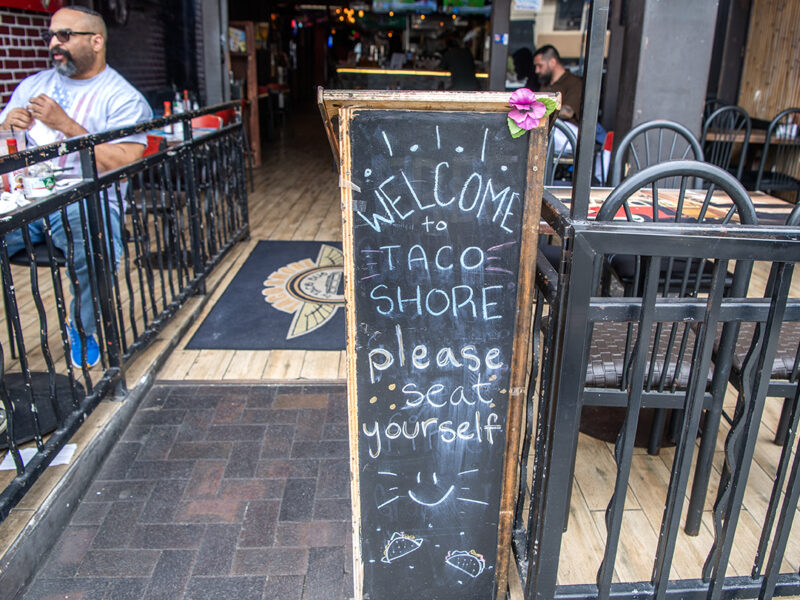 WELCOME
to
TACO
SHORE
please
seat
yourself